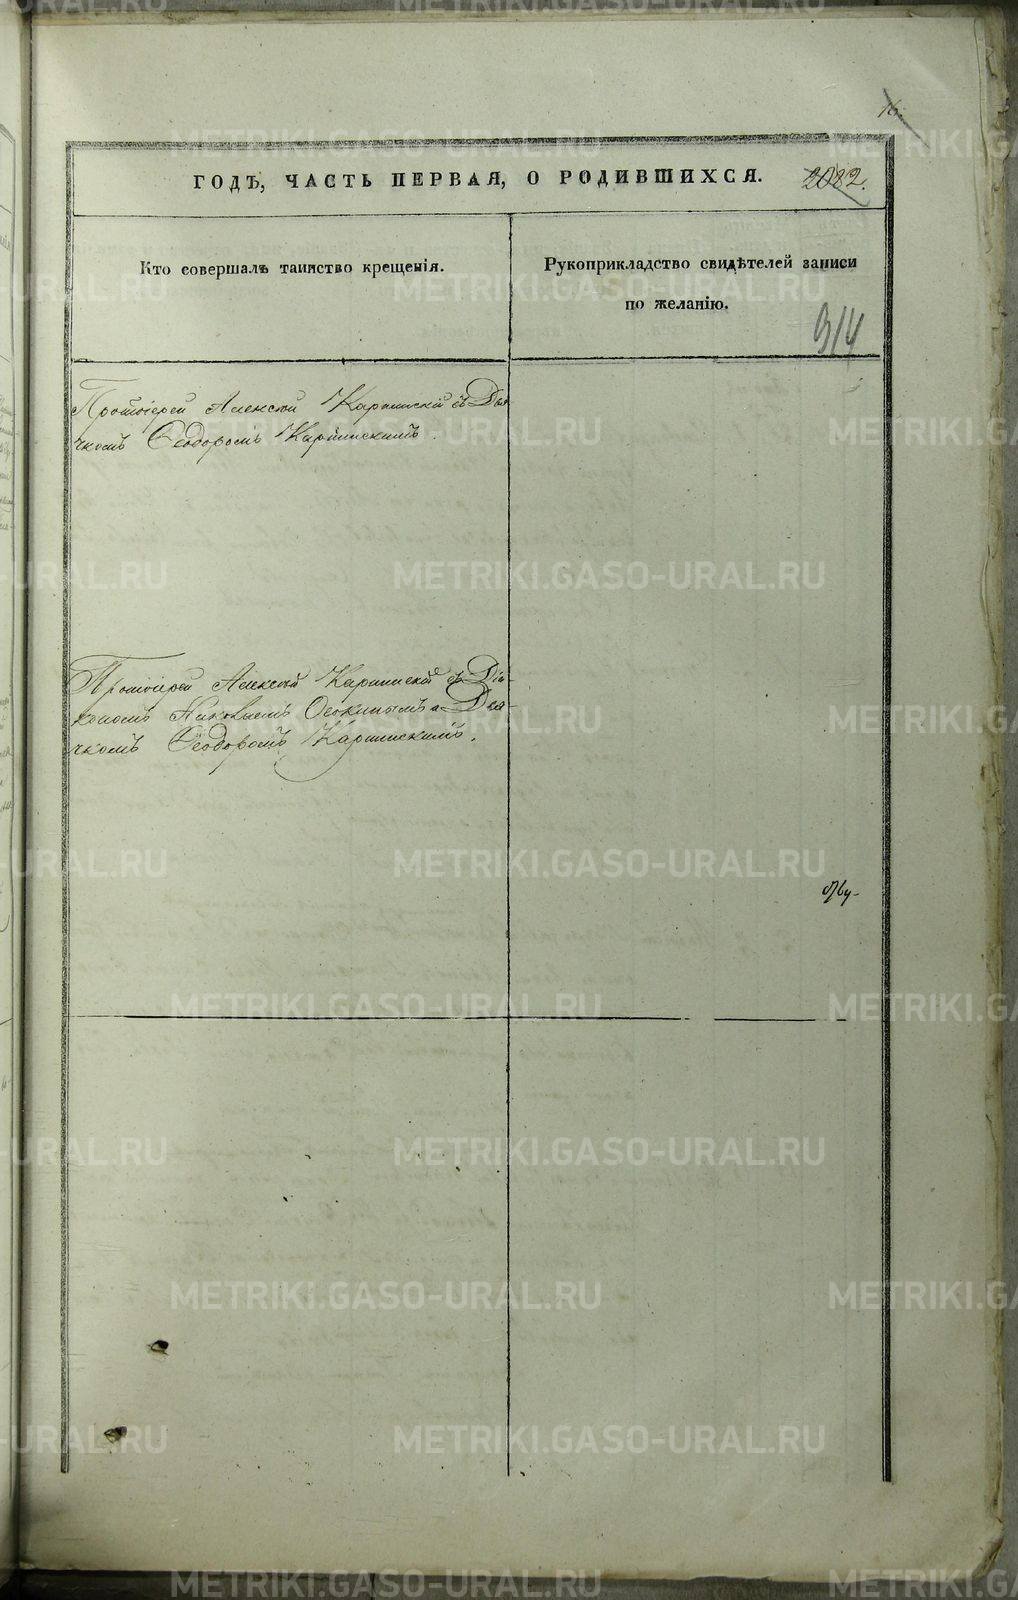 16
ГОДЪ, ЧАСТЬ ПЕРВАЯ, О РОДИВШИХСЯ. 2082.
Кто совершалъ таинство крещенія.
Рукоприкладство свидѣтелей записи
по желанію.
314
Протоіерей Алексѣй Карпинскій съ Дья-
чкомъ Ѳеодоромъ Карпинскимъ.
Протоіерей Алексѣй Карпинскій съ Діа-
кономъ Николаемъ Осокинымъ и Дья-
чкомъ Ѳеодоромъ Карпинскимъ.
METRIKI.GASO-URAL.RU